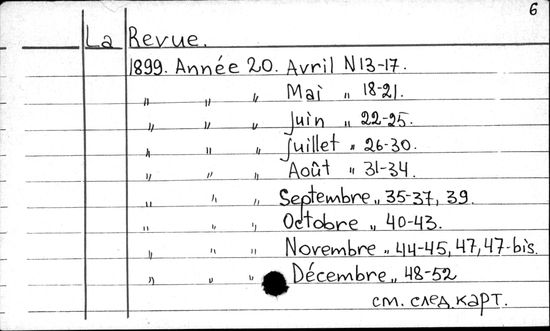 6
La Revue.
1899. Année 20. Avril N 13-17.
„ „ „ Mai „ 18-21.
„ „ „ Juin „ 22-25.
„ „ „ Juillet „ 26-30.
„ „ „ Août „ 31-34.
„ „ „ Septembre „ 35-37, 39.
„ „ „ Octobre „ 40-43.
„ „ „ Novembre „ 44-45, 47, 47-bis.
„ „ „ Décembre „ 48-52
см. след. карт.